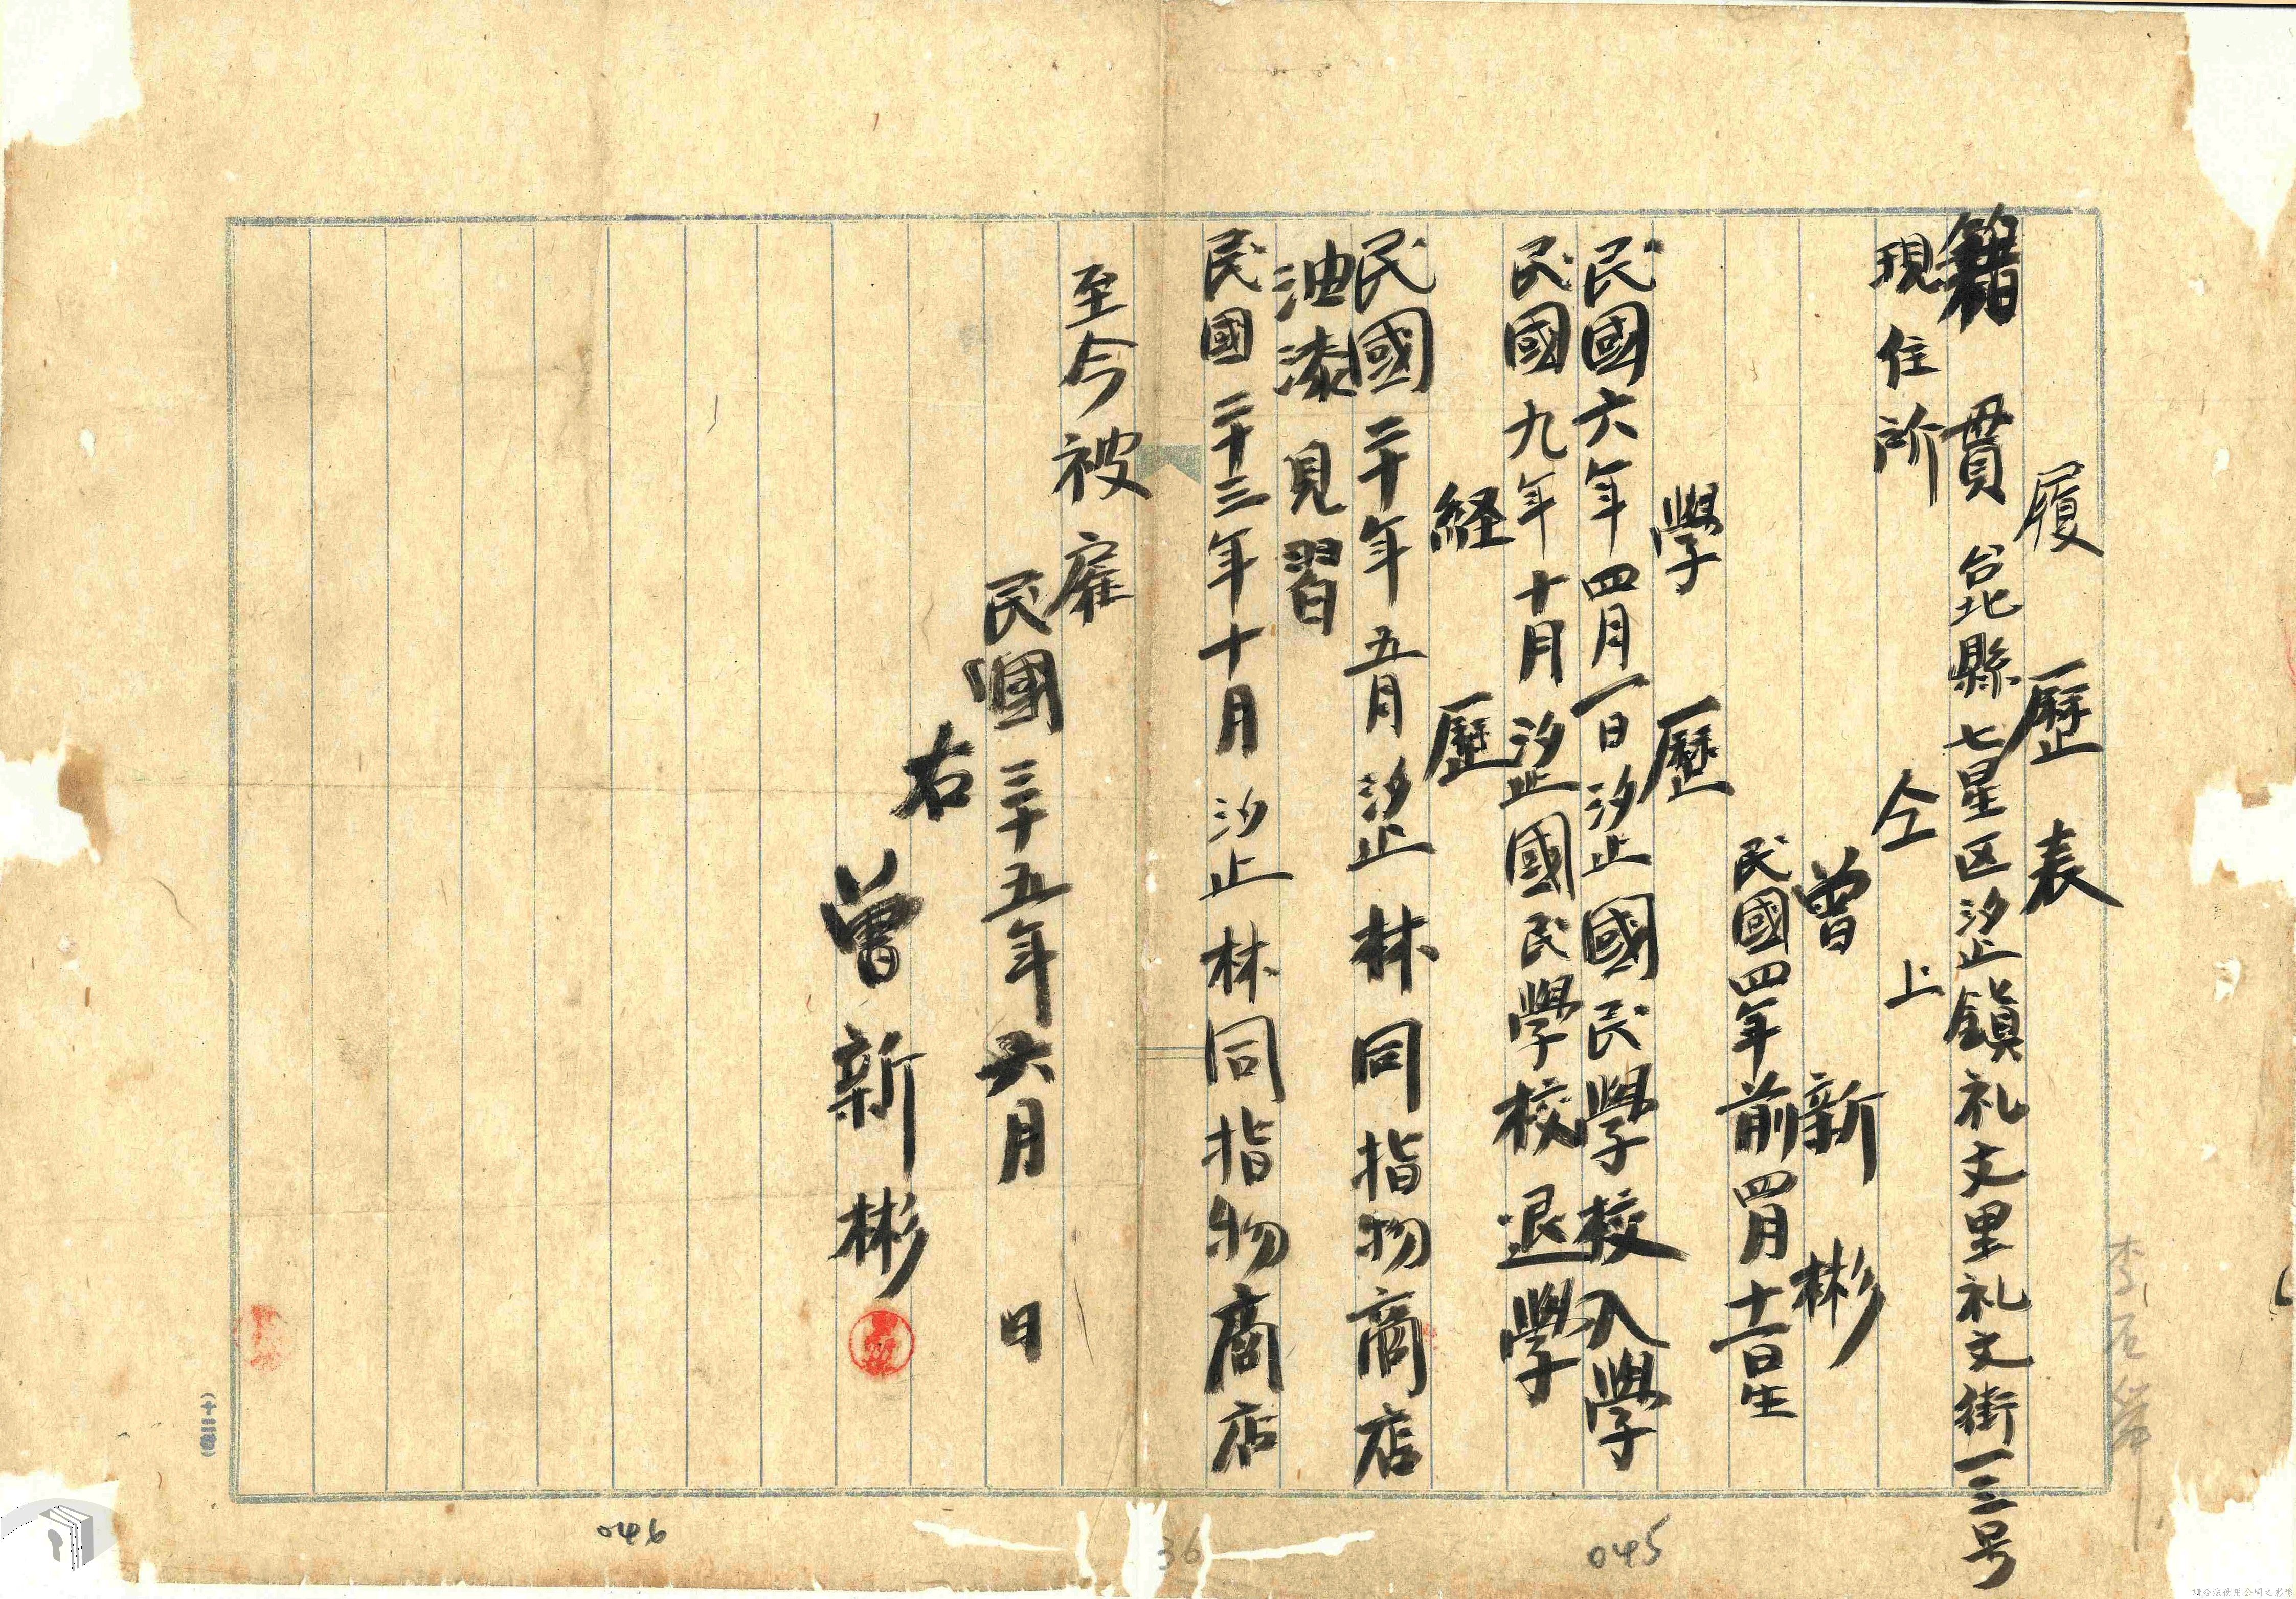 履歷表
籍貫 台北縣七星区汐止鎮礼文里礼文街一三号
現住所 仝上
曾新彬
民國四年前四月十一日生
學歷
民國六年四月一日汐止國民學校入學
民國九年十月汐止國民學校退學
経歷
民國二十年五月汐止林同指物商店
油漆見習
民國二十三年十月汐止林同指物商店
至今被雇
民國三十五年六月 日
右
曾新彬
045
36
046
請合法使用公開之影像